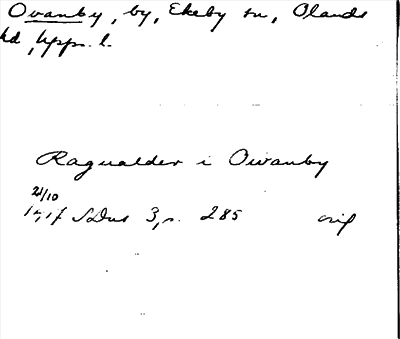 Ovanby, by, Ekeby sn, Olands
hd, Upps. l.
Ragualder i Owanby
21/10
1417 SDns 3, s. 285 orig